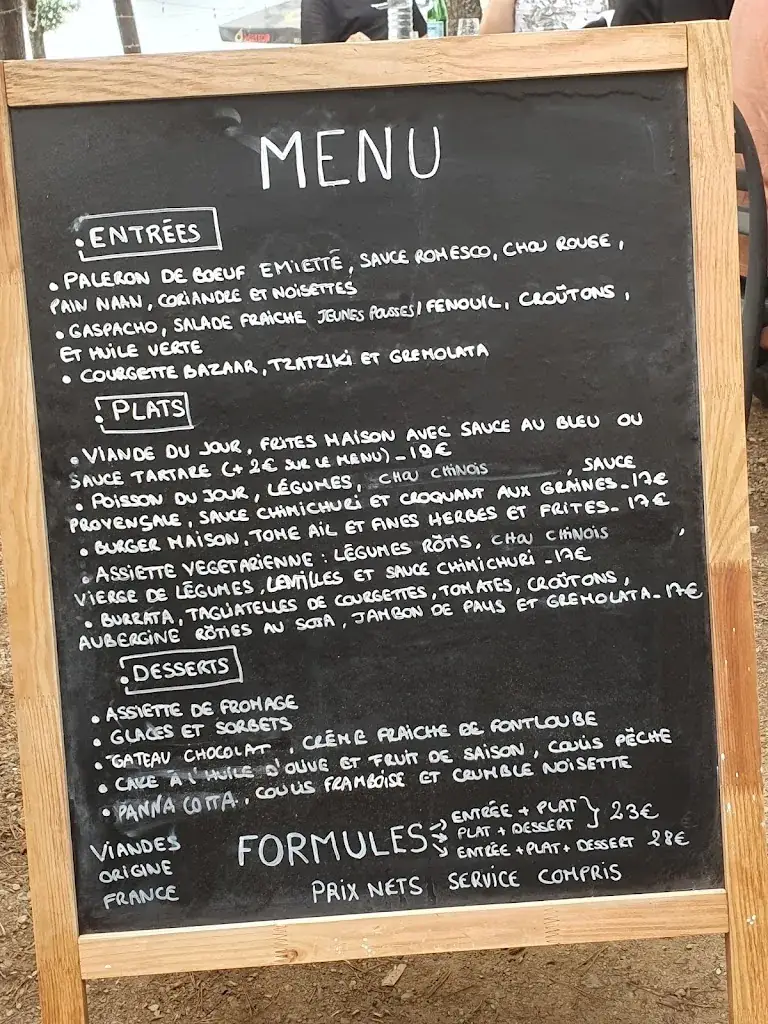 MENU
• ENTRÉES
• PALERON DE BOEUF EMIETTÉ, SAUCE ROMESCO, CHOU ROUGE,
PAIN NAAN, CORIANDRE ET NOISETTES
• GASPACHO, SALADE FRAICHE JEUNES POUSSES/FENOUIL, CROÛTONS,
ET HUILE VERTE
• COURGETTE BAZAAR, TZATZIKI ET GREMOLATA
• PLATS
• VIANDE DU JOUR, FRITES MAISON AVEC SAUCE AU BLEU OU
SAUCE TARTARE (+ 2€ SUR LE MENU) - 19€
• POISSON DU JOUR, LÉGUMES, CHOU CHINOIS, SAUCE
PROVENÇALE, SAUCE CHIMICHURI ET CROQUANT AUX GRAINES - 17€
• BURGER MAISON, TOME AIL ET FINES HERBES ET FRITES - 17€
• ASSIETTE VEGETARIENNE : LÉGUMES RÔTIS, CHOU CHINOIS,
VIERGE DE LÉGUMES, LENTILLES ET SAUCE CHIMICHURI - 17€
• BURRATA, TAGLIATELLES DE COURGETTES, TOMATES, CROÛTONS,
AUBERGINE RÔTIES AU SOJA, JAMBON DE PAYS ET GREMOLATA - 17€
• DESSERTS
• ASSIETTE DE FROMAGE
• GLACES ET SORBETS
• GATEAU CHOCOLAT, CRÈME FRAICHE DE FONTLOUBE
• CAKE À L'HUILE D'OLIVE ET FRUIT DE SAISON, COULIS PÊCHE
• PANNA COTTA, COULIS FRAMBOISE ET CRUMBLE NOISETTE
VIANDES
ORIGINE
FRANCE
FORMULES → ENTRÉE + PLAT } 23€
→ PLAT + DESSERT
→ ENTRÉE + PLAT + DESSERT 28€
PRIX NETS SERVICE COMPRIS